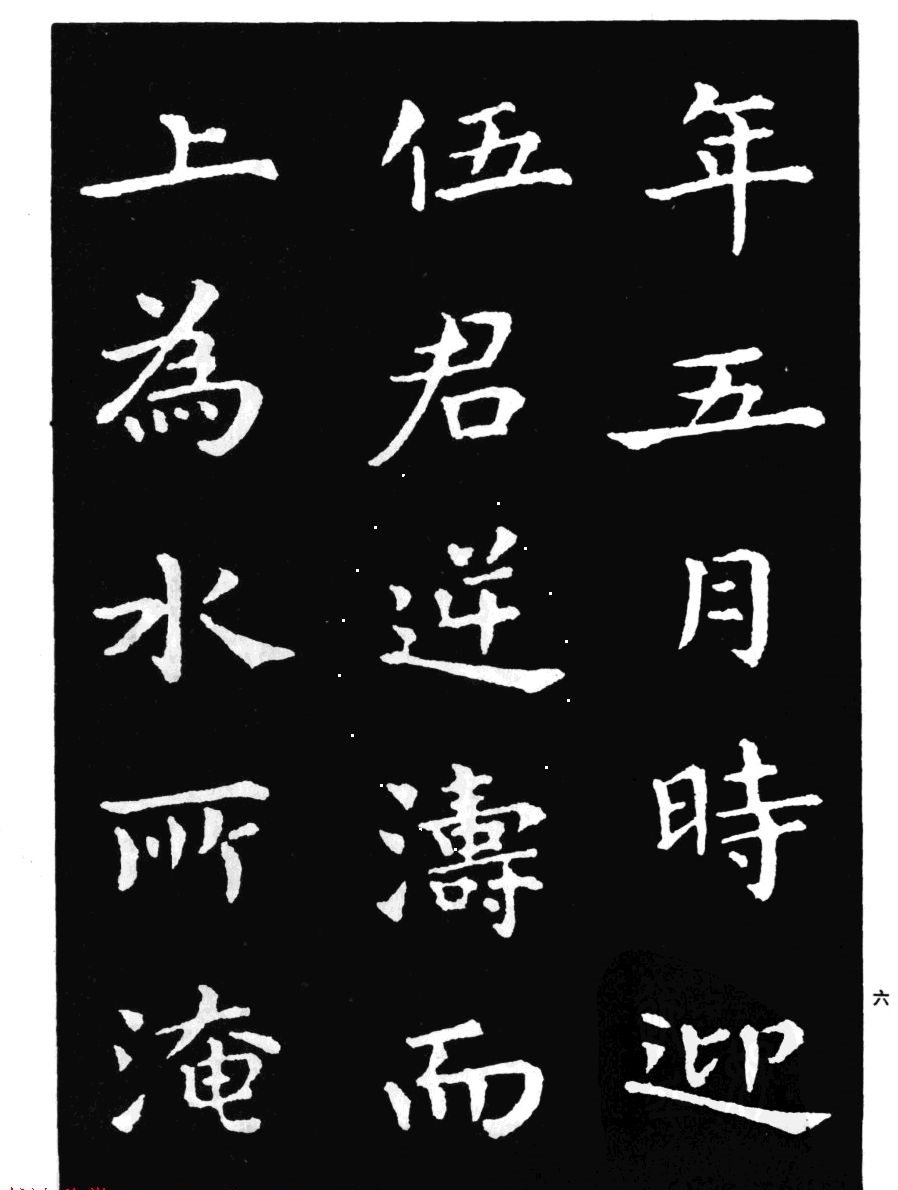 年五月時迎
伍君逆濤而
上為水所淹
六